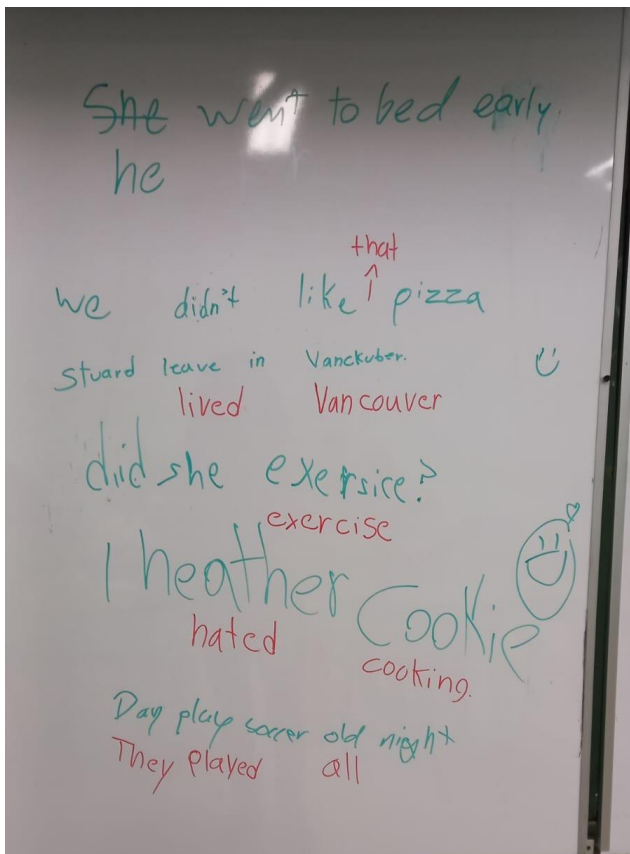 She went to bed early.
he
that
we didn't like pizza
Stuard leave in Vanckuber.
lived Vancouver
did she exersice?
exercise
I heather Cookie
hated cooking.
Day play soccer old night
They played all